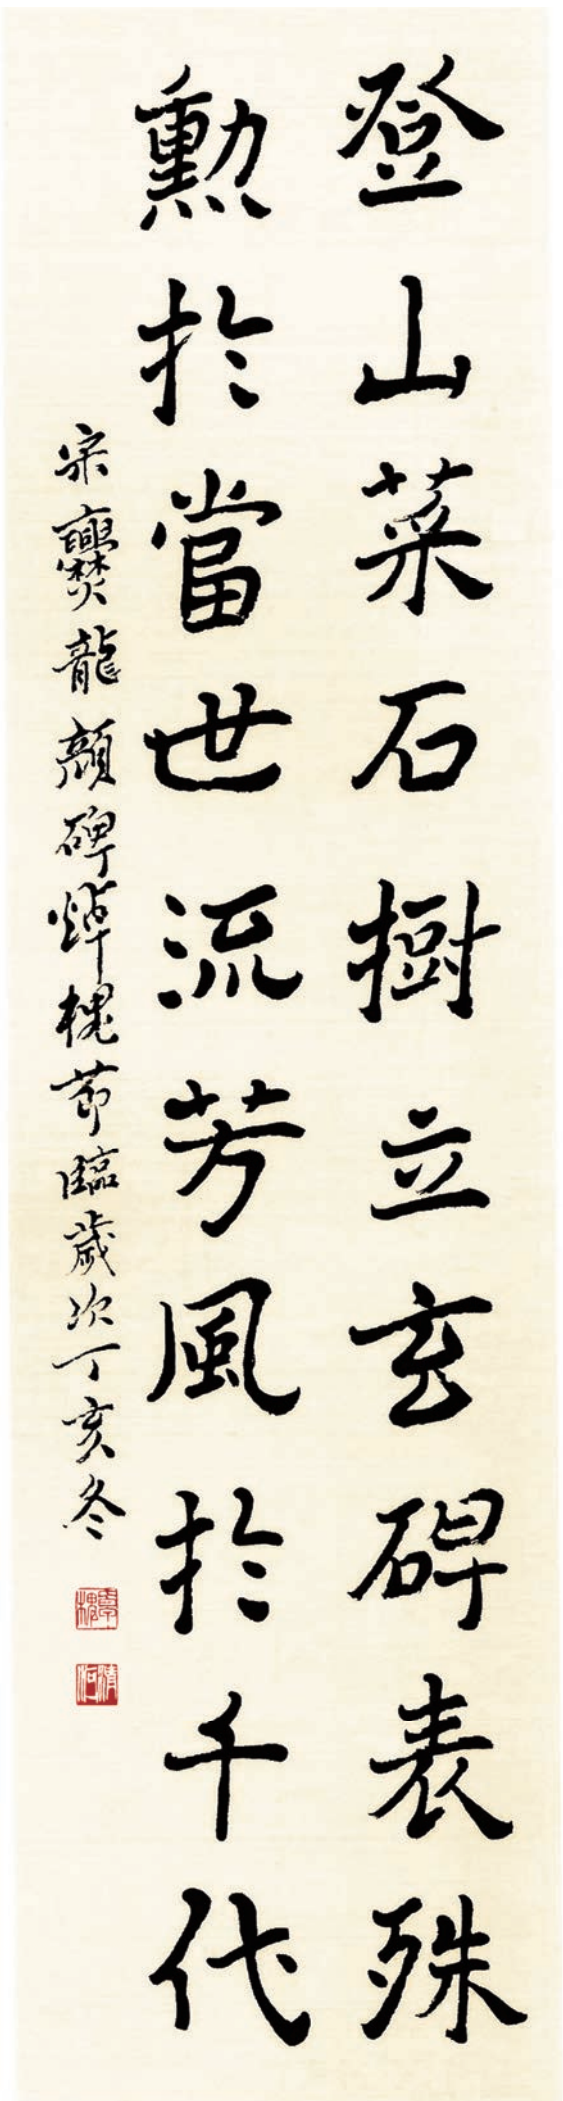 登山菜石樹立玄碑表殊
勲於當世流芳風於千代
宋爨龍顏碑焯槐節臨歲次丁亥冬